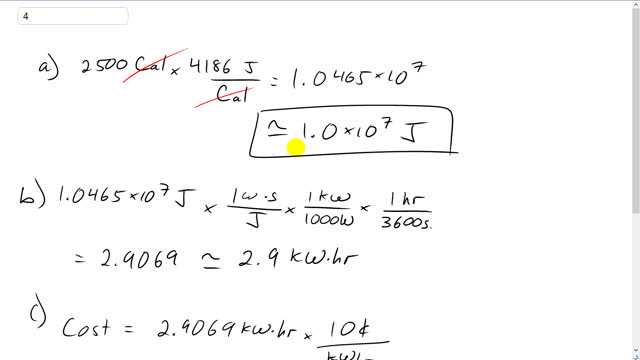 4
a) 2500 Cal × 4186 J / Cal = 1.0465 × 10^7
≃ 1.0 × 10^7 J
b) 1.0465 × 10^7 J × 1 W·s / J × 1 kW / 1000 W × 1 hr / 3600 s.
= 2.9069 ≃ 2.9 kW·hr
c) Cost = 2.9069 kW·hr × 10¢